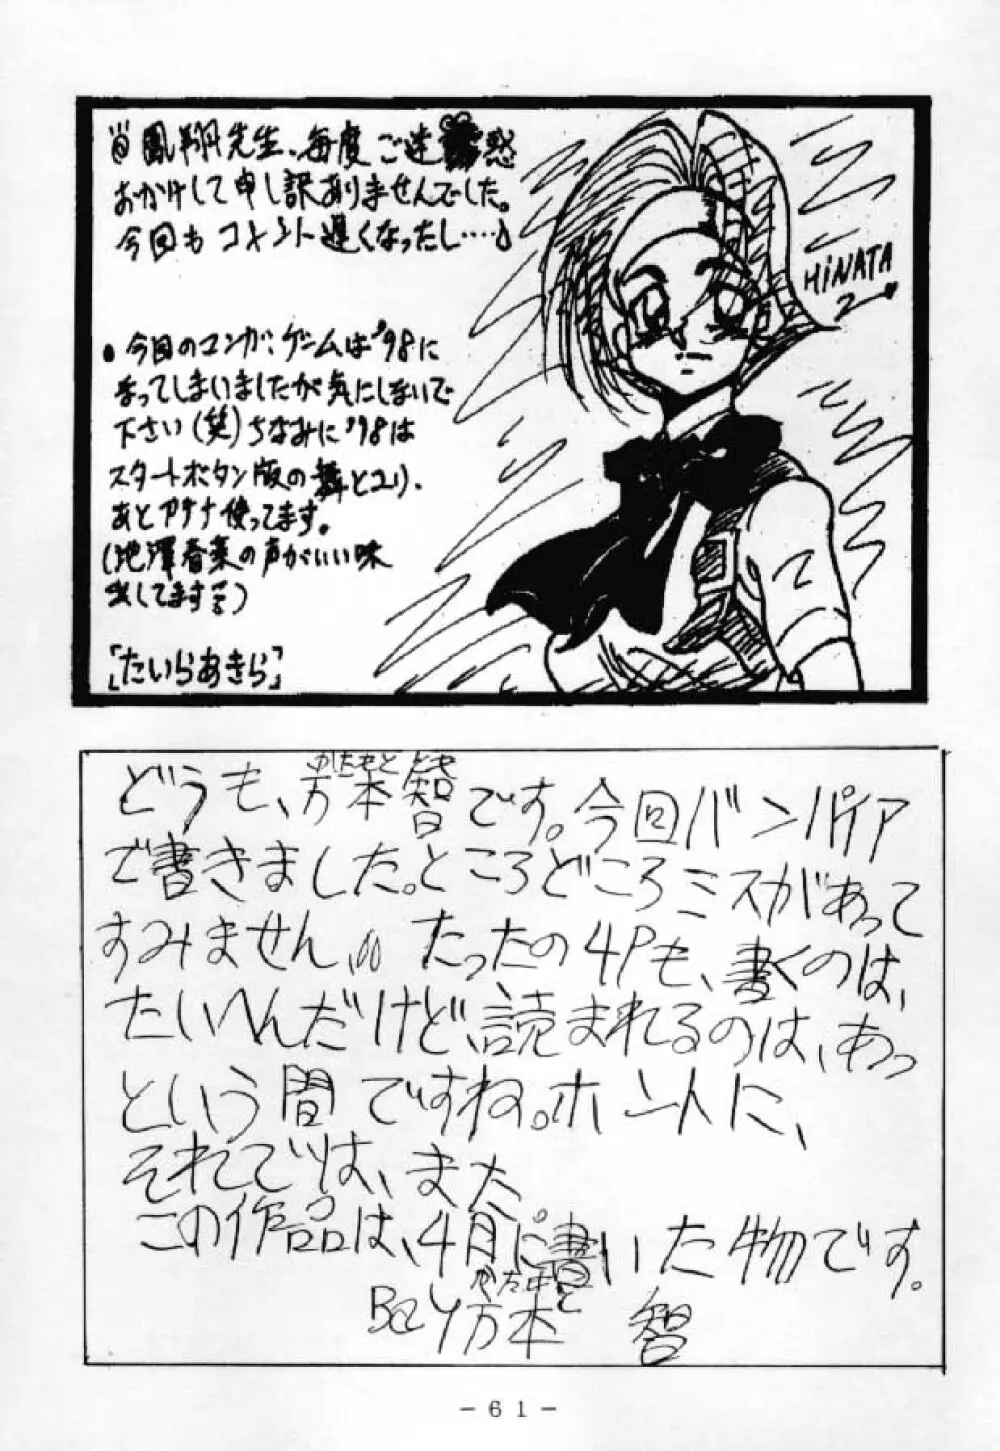 鳳翔先生、毎度ご迷惑
おかけして申し訳ありませんでした。
今回もコメント遅くなったし‥‥
HiNATA
2
•今回のマンガ、ゲームは'98に
なってしまいましたが気にしないで
下さい(笑)ちなみに'98は
スタートボタン版の舞とユリ、
あとアテナ使ってます。
(池澤春菜の声がいい味
出してます)
「たいらあきら」
かたもと とも
どうも、方本智です。今回バンパイア
で書きました。ところどころミスがあって
すみません。たったの4Pも、書くのは、
たいへんだけど、読まれるのは、あっ
という間ですね。ホントに、
それでは、また。
この作品は、4月に書いた物です。
かたもと
By方本 智
- 61 -